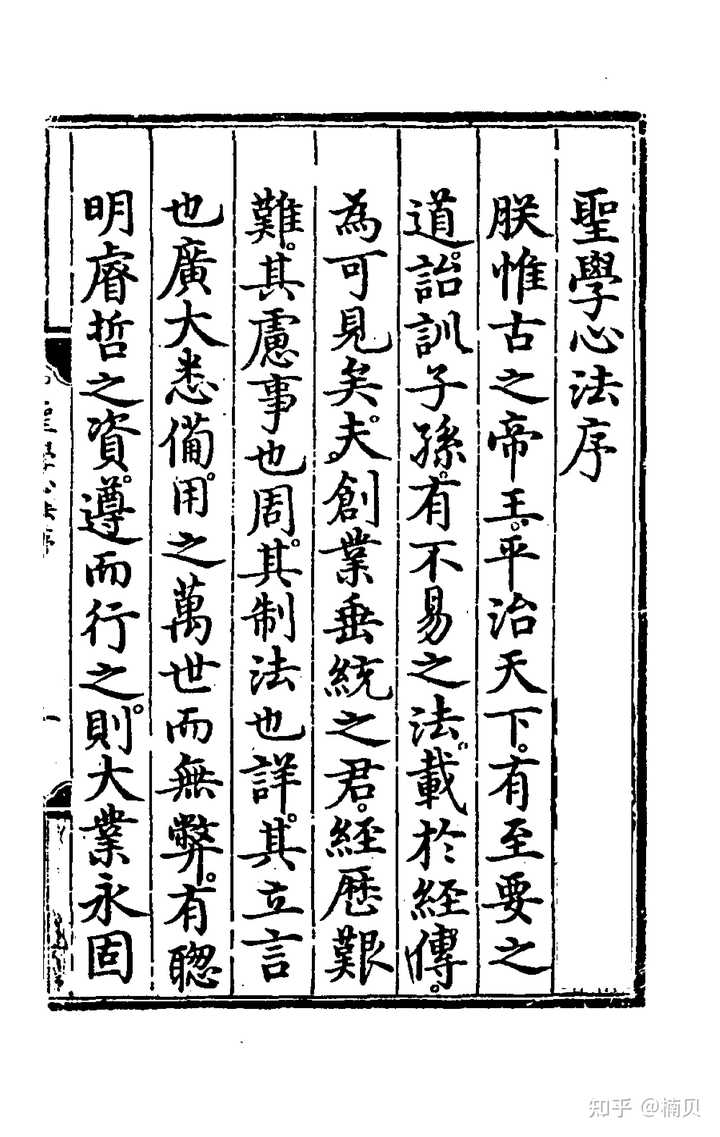 聖學心法序
朕惟古之帝王。平治天下。有至要之
道。詒訓子孫。有不易之法。載於經傳。
為可見矣。夫創業垂統之君。經歷艱
難。其慮事也周。其制法也詳。其立言
也廣大悉備。用之萬世而無弊。有聦
明睿哲之資。遵而行之。則大業永固
聖學心法序
一
知乎 @楠贝